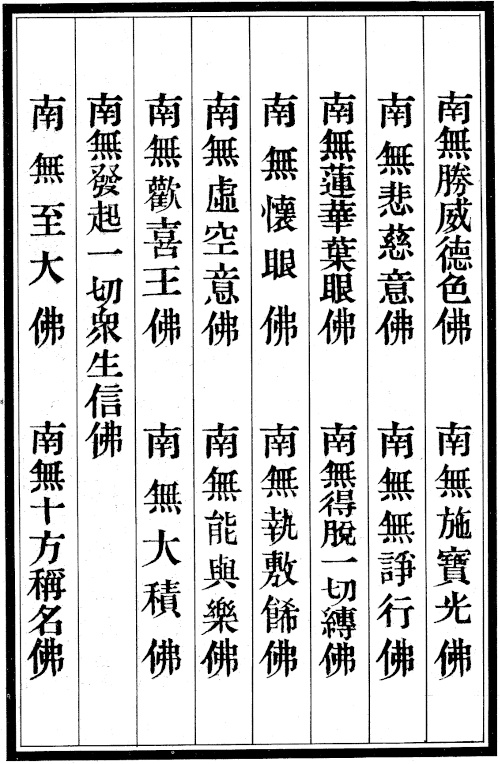 南無勝威德色佛　南無施寶光佛
南無悲慈意佛　南無無諍行佛
南無蓮華葉眼佛　南無得脫一切縛佛
南無懷眼佛　南無執敷飾佛
南無虛空意佛　南無能與樂佛
南無歡喜王佛　南無大積佛
南無發起一切衆生信佛
南無至大佛　南無十方稱名佛